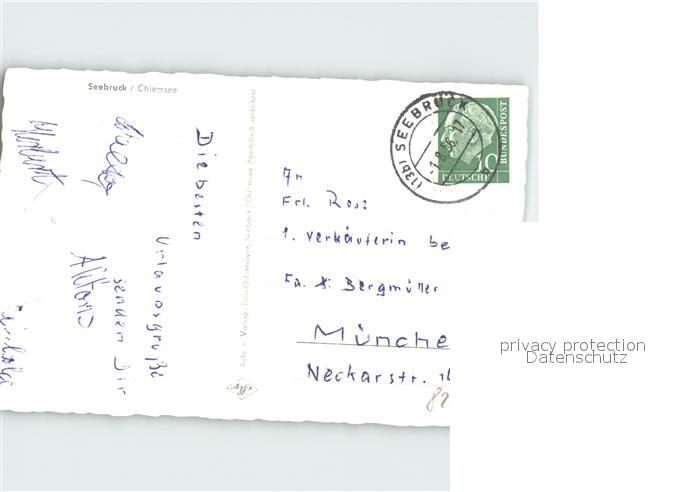 Seebruck / Chiemsee
Die besten
Urlaubsgrüße
senden Dir
Aufn. u. Verlag: Seebruck / Chiemsee (Nachdruck verboten)
(13b) SEEBRUCK
-1.8.56.-17
10
DEUTSCHE
BUNDESPOST
An
Frl. Rosi
1. Verkäuferin be
Fa. X. Bergmüller
Münche
Neckarstr.
82
privacy protection
Datenschutz